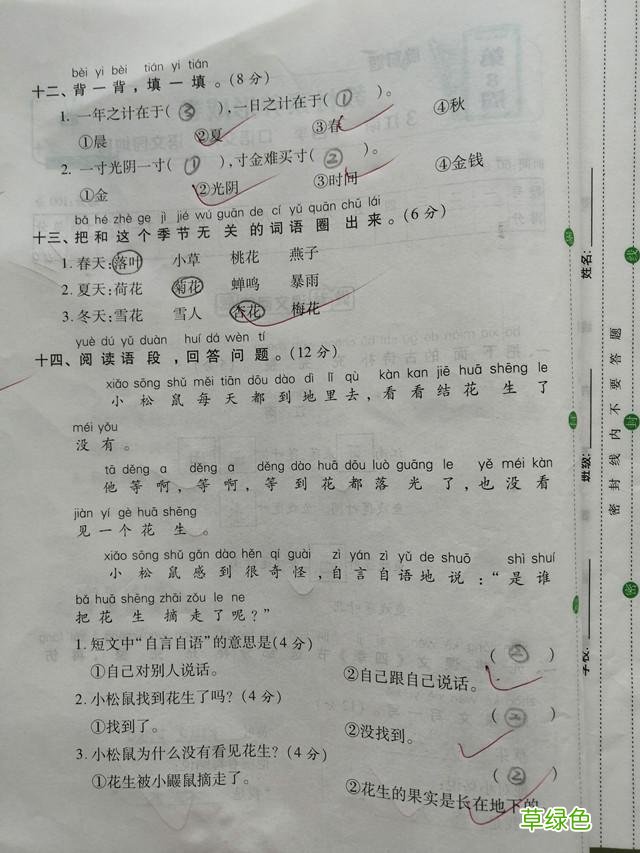 bèi yi bèi　tián yi tián
十二、背一背,填一填。(8分)
1. 一年之计在于( ③ ),一日之计在于( ① )。
①晨　②夏　③春　④秋
2. 一寸光阴一寸( ① ),寸金难买寸( ② )。
①金　②光阴　③时间　④金钱
bǎ hé zhè ge jì jié wú guān de cí yǔ quān chū lái
十三、把和这个季节无关的词语圈出来。(6分)
1. 春天:落叶　小草　桃花　燕子
2. 夏天:荷花　菊花　蝉鸣　暴雨
3. 冬天:雪花　雪人　杏花　梅花
yuè dú yǔ duàn　huí dá wèn tí
十四、阅读语段,回答问题。(12分)
xiǎo sōng shǔ měi tiān dōu dào dì lǐ qù　kàn kan jiē huā shēng le
小松鼠每天都到地里去,看看结花生了
méi yǒu
没有。
tā děng a　děng a　děng dào huā dōu luò guāng le　yě méi kàn
他等啊,等啊,等到花都落光了,也没看
jiàn yí gè huā shēng
见一个花生。
xiǎo sōng shǔ gǎn dào hěn qí guài　zì yán zì yǔ de shuō　shì shuí
小松鼠感到很奇怪,自言自语地说:“是谁
bǎ huā shēng zhāi zǒu le ne
把花生摘走了呢?”
1. 短文中“自言自语”的意思是(4分)　( ② )
①自己对别人说话。　②自己跟自己说话。
2. 小松鼠找到花生了吗?(4分)　( ② )
①找到了。　②没找到。
3. 小松鼠为什么没有看见花生?(4分)　( ② )
①花生被小鼹鼠摘走了。　②花生的果实是长在地下的
姓名:
班级:
学校:
密封线内不要答题
线
封
密
草绿色